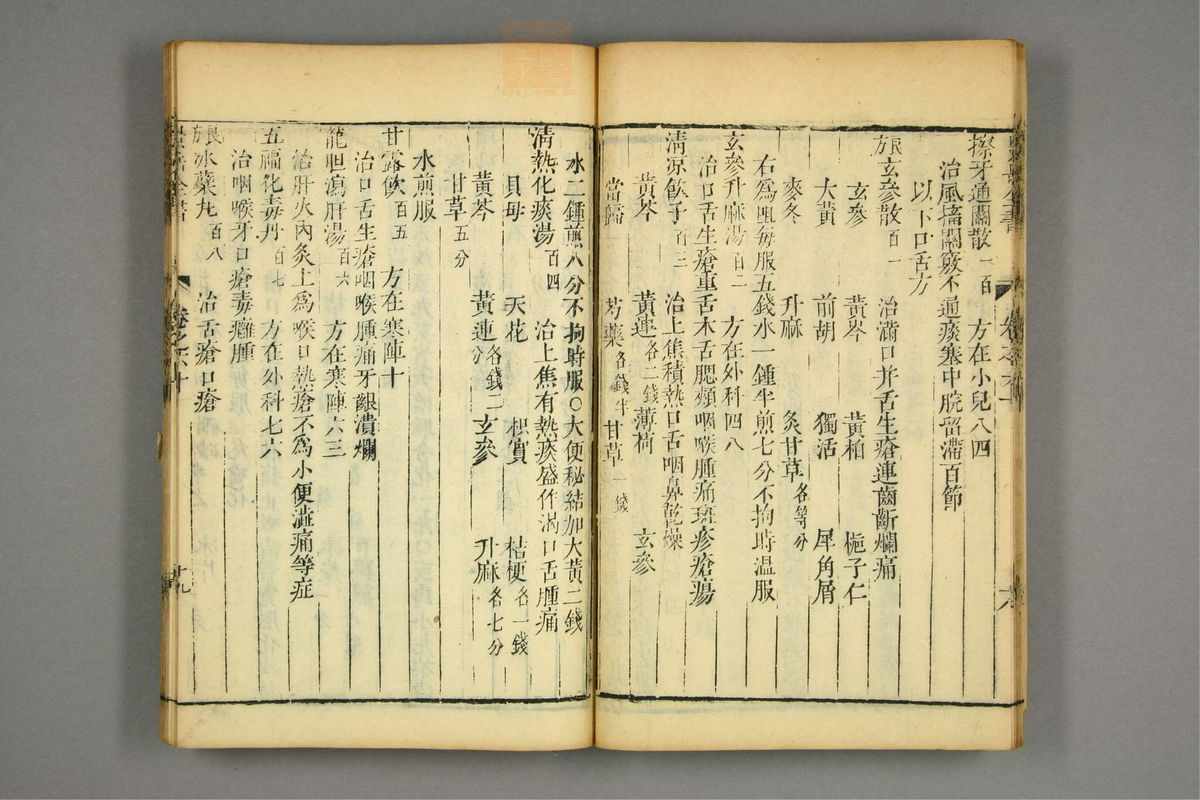 擦牙通關散一百 方在小兒八四
治風搐關竅不通痰塞中脘留滯百節
以下口舌方
玄參散百一 治滿口并舌生瘡連齒斷爛痛
玄參 黃芩 黃柏 梔子仁
大黃 前胡 獨活 犀角屑
麥冬 升麻 炙甘草各等分
右為咀每服五錢水一鍾半煎七分不拘時温服
玄參升麻湯百二 方在外科四八
治口舌生瘡重舌木舌腮頰咽喉腫痛斑疹瘡瘍
清凉飲子百三 治上焦積熱口舌咽鼻乾燥
黃芩 黃連各二錢 薄荷 玄參
當歸 芍藥各錢半 甘草一錢
水二鍾煎八分不拘時服○大便秘結加大黃二錢
清熱化痰湯百四 治上焦有熱痰盛作渴口舌腫痛
貝母 天花 枳實 桔梗各一錢
黃芩 黃連各錢二分 玄參 升麻各七分
甘草五分
水煎服
甘露飲百五 方在寒陣十
治口舌生瘡咽喉腫痛牙齦潰爛
龍胆瀉肝湯百六 方在寒陣六三
治肝火內灸上為喉口熱瘡下為小便澁痛等症
五福化毒丹百七 方在外科七六
治咽喉牙口瘡毒癰腫
冰蘗丸百八 治舌瘡口瘡
卷之六十
十九